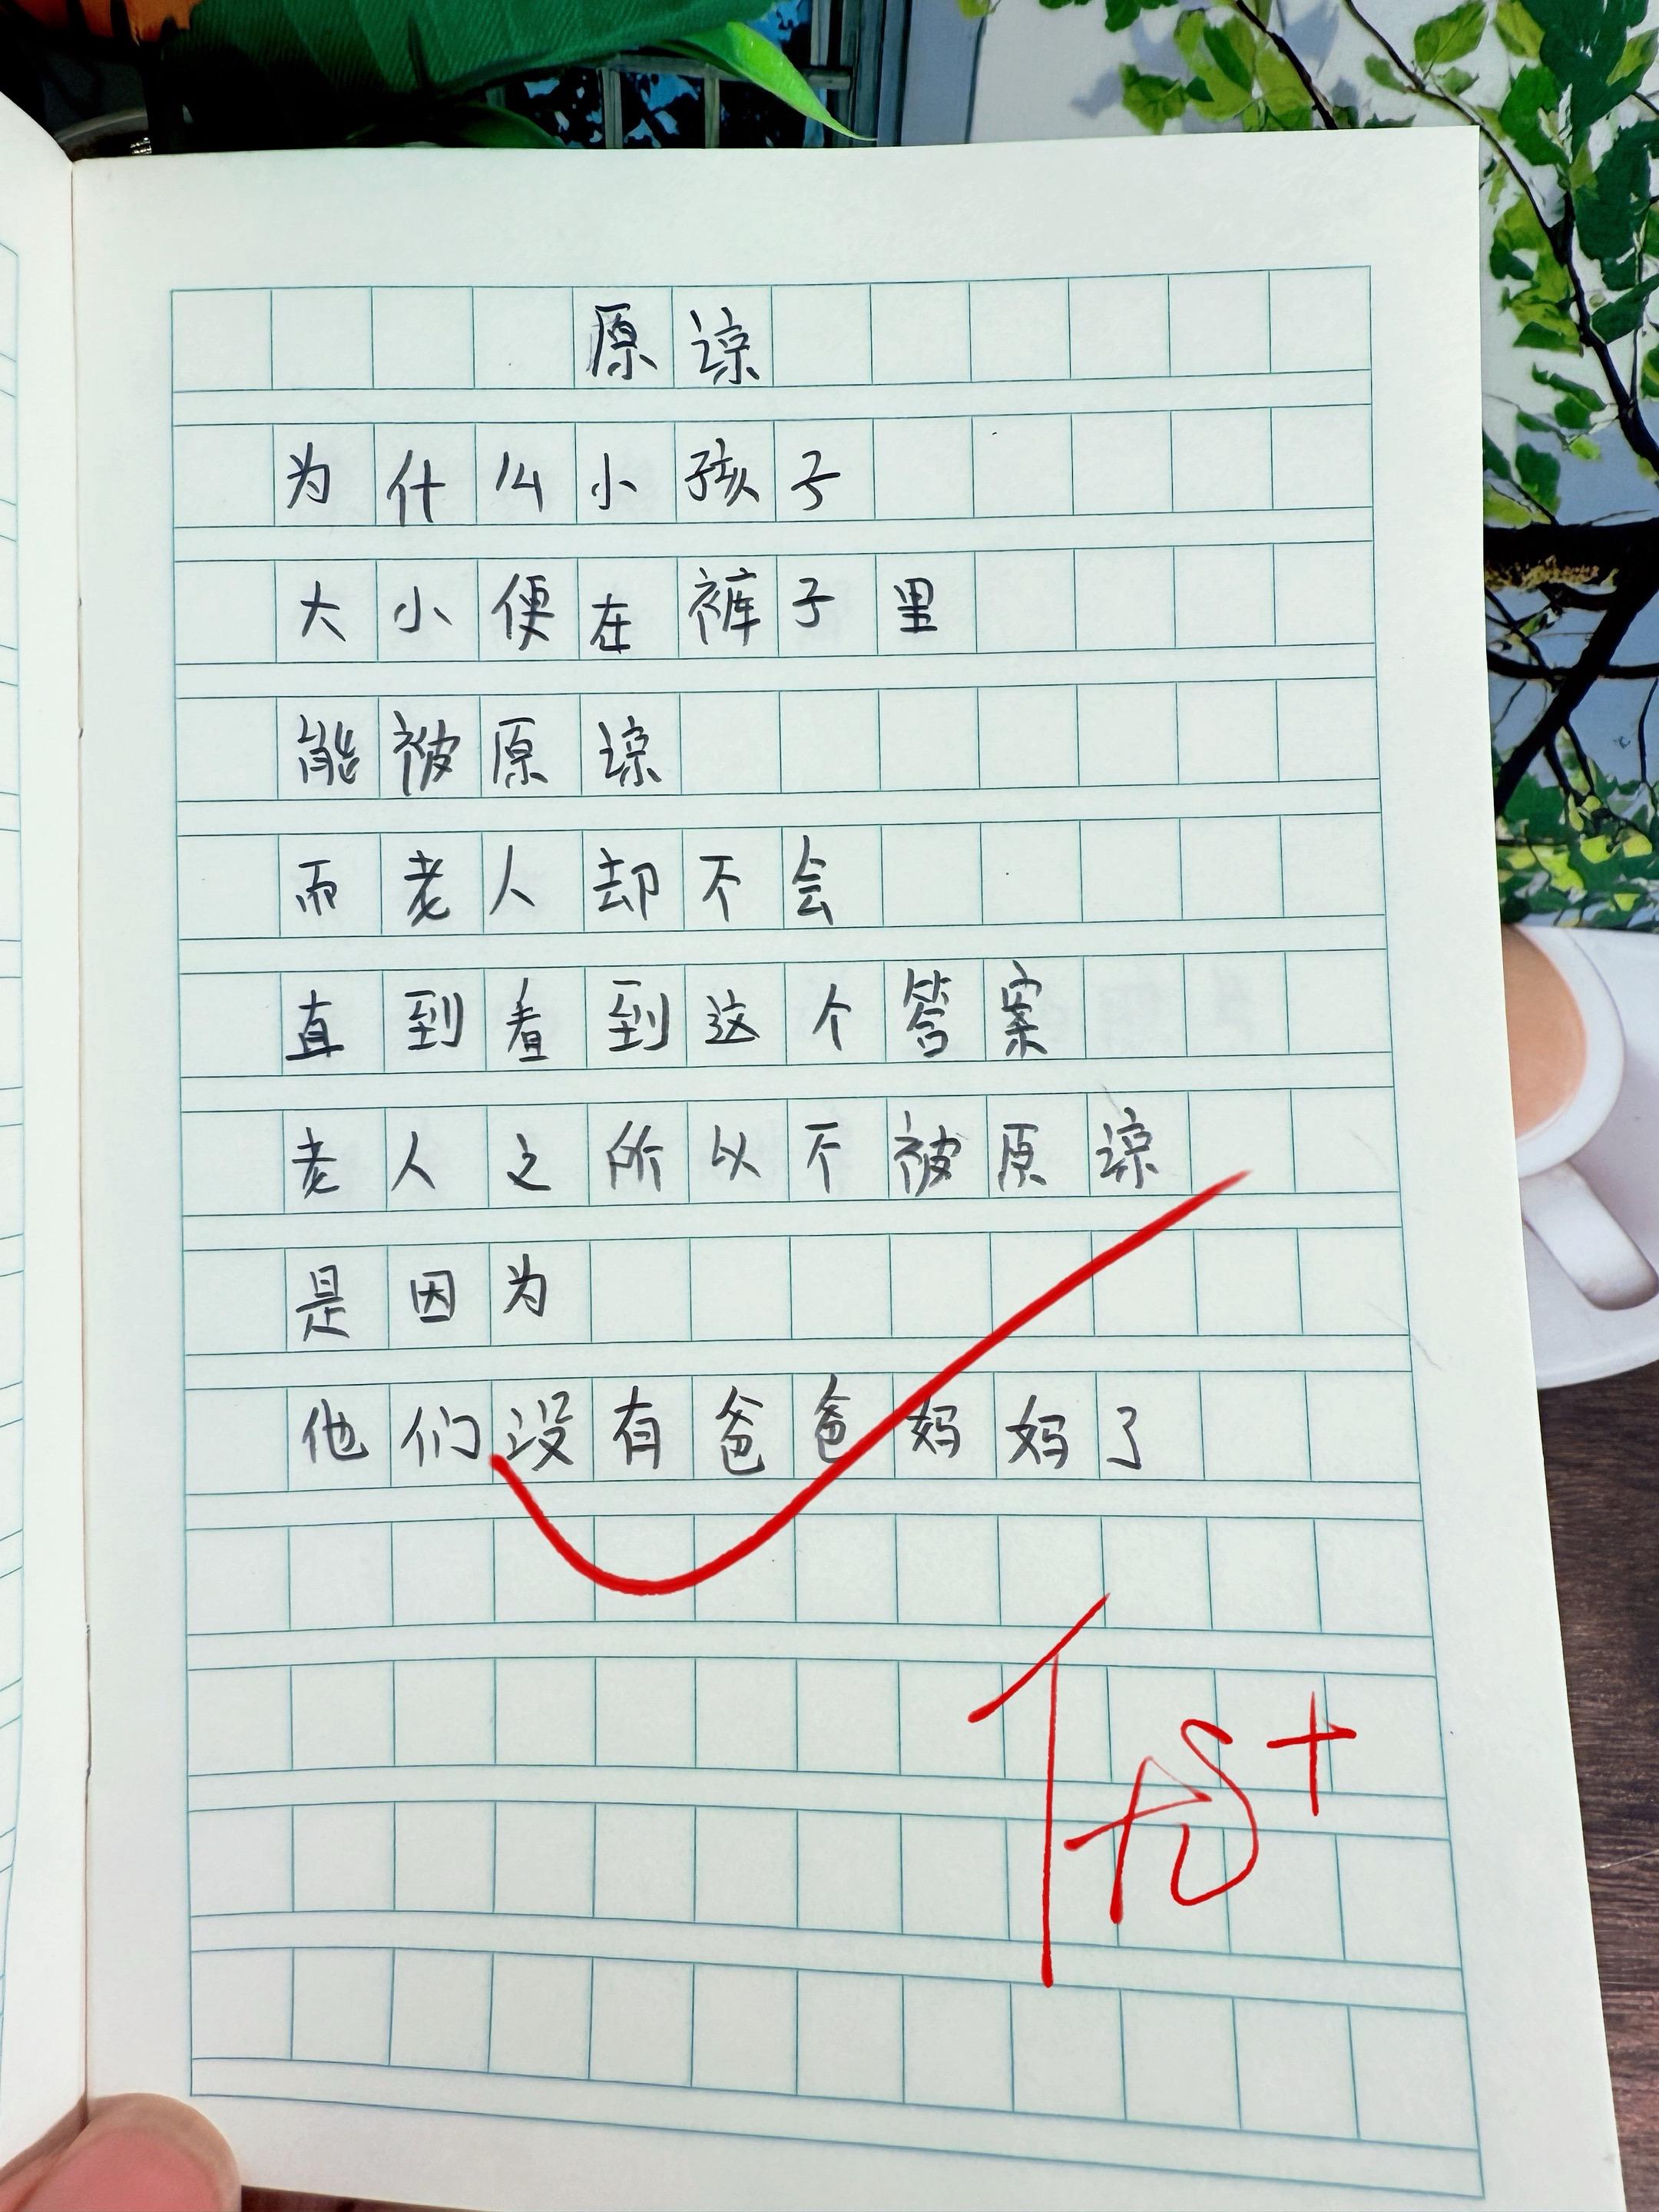 原谅
为什么小孩子
大小便在裤子里
能被原谅
而老人却不会
直到看到这个答案
老人之所以不被原谅
是因为
他们没有爸爸妈妈了
优+